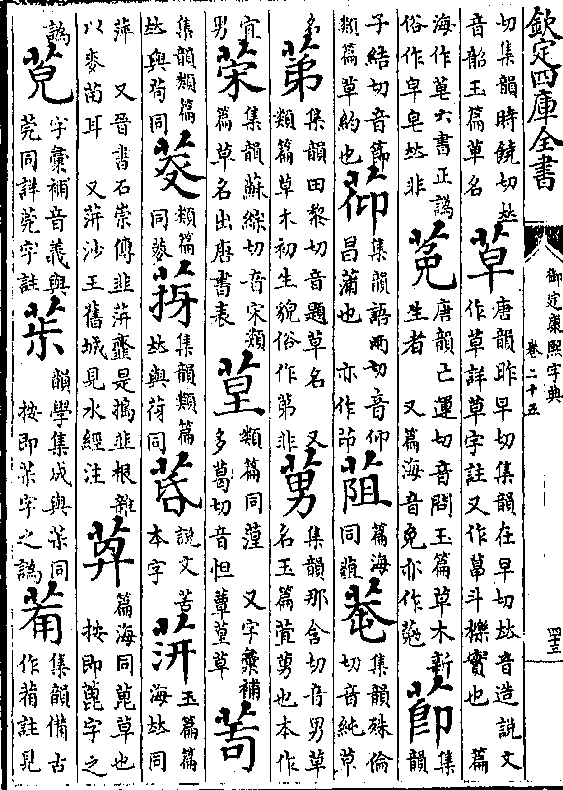 欽定四庫全書
御定康熙字典
卷二十五
切集韻時饒切𠀤
音韶玉篇草名
草
唐韻昨早切集韻在早切𠀤音造說文
作草詳草字註又作 斗櫟實也 篇
海作萆六書正譌
俗作皁皂𠀤非
莬
唐韻亡運切音問玉篇草木新
生者 又篇海音免亦作
莭
集
韻
子結切音節
類篇草約也
集韻語兩切音仰
昌蒲也 亦作茆
篇海
同蒩
集韻殊倫
切音純草
名
苐
集韻田黎切音題草名 又
類篇草木初生貌俗作第非
莮
集韻那含切音男草
名玉篇萱莮也本作
宜
男
集韻蘇綜切音宋類
篇草名出唐書表
類篇同蕇 又字彙補
多葛切音怛蕇 草
集韻類篇
𠀤與茍同
類篇
同蔆
集韻類篇
𠀤與荷同
說文苦
本字
玉篇篇
海𠀤同
萍 又晉書石崇傳韭蓱虀是搗韭根雜
以麥苗耳 又蓱沙王舊城見水經注
篇海同蓖草也
按即蓖字之
譌
字彙補音義與
莞同詳莞字註
韻學集成與茶同
按即茶字之譌
集韻備古
作 註見